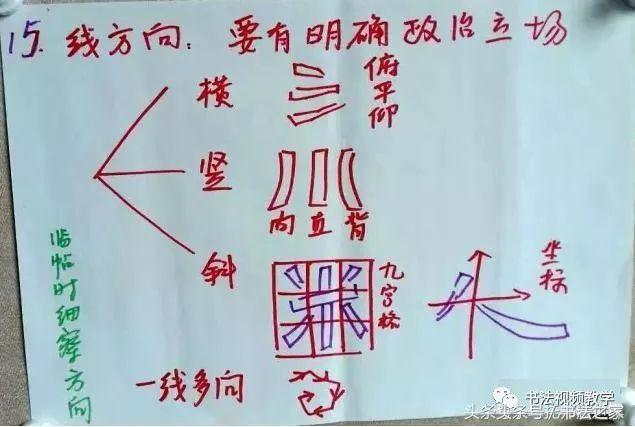 15. 线方向：要有明确政治立场
横
俯平仰
竖
向直背
斜
九宫格
坐标
一线多向
临帖时细察方向
书法视频教学